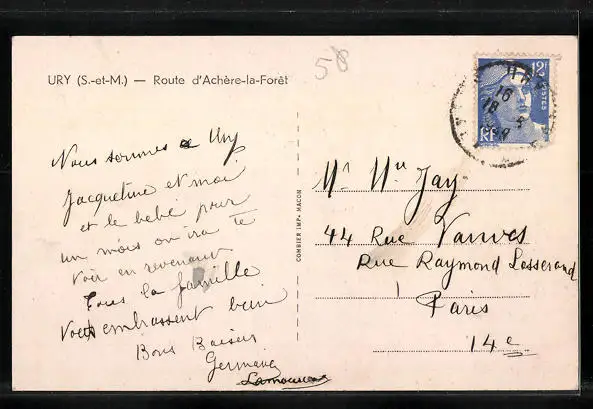 58
URY (S.-et-M.) — Route d'Achère-la-Forêt
12F
POSTES
RF
16
18
Nous sommes a Ury
Jacqueline et moi
et le bébé pour
un mois on ira te
voir en revenant
Tous la famille
Vous embrassent bien
Bons Baisers
Germaine
COMBIER IMP. MACON
Mr Mme Jay
44 Rue Vanves
Rue Raymond Losserand
Paris
14e